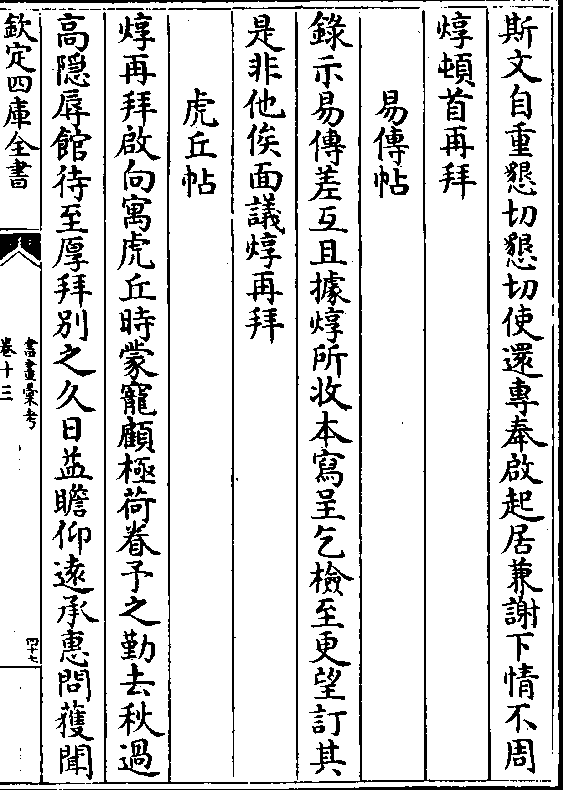 斯文自重懇切懇切使還專奉啟起居兼謝下情不周
焞頓首再拜
易傳帖
錄示易傳差互且據焞所收本寫呈乞檢至更望訂其
是非他俟面議焞再拜
虎丘帖
焞再拜啟向寓虎丘時蒙寵顧極荷眷予之勤去秋過
高隱辱館待至厚拜別之久日益瞻仰遠承惠問獲聞
欽定四庫全書
書畫彙考
卷十三
四十七